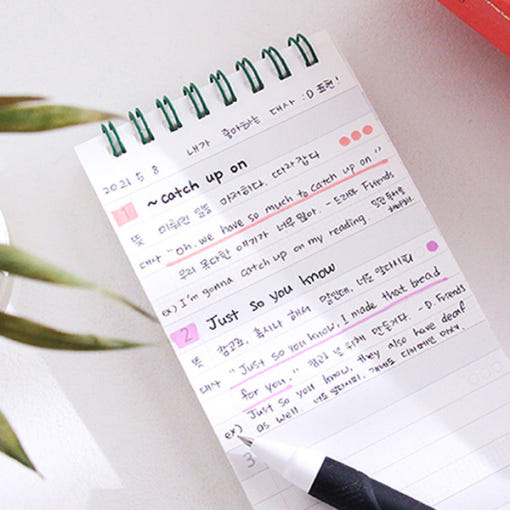 2021 5 8 내가 좋아하는 대사 :D 표현!
1 ~catch up on
뜻 미뤄진 일을 마저하다. 따라잡다
대사 "Oh, we have so much to catch up on"
우리 못다한 얘기가 너무 많아. - 드라마 Friends
ex) I'm gonna catch up on my reading.
2 Just so you know
뜻 참고로, 혹시나 해서 말인데, 너도 알다시피
대사 "Just so you know, I made that bread
for you." 널 위해 만든거다. - D. Friends
ex) Just so you know, they also have deaf
as well.
3